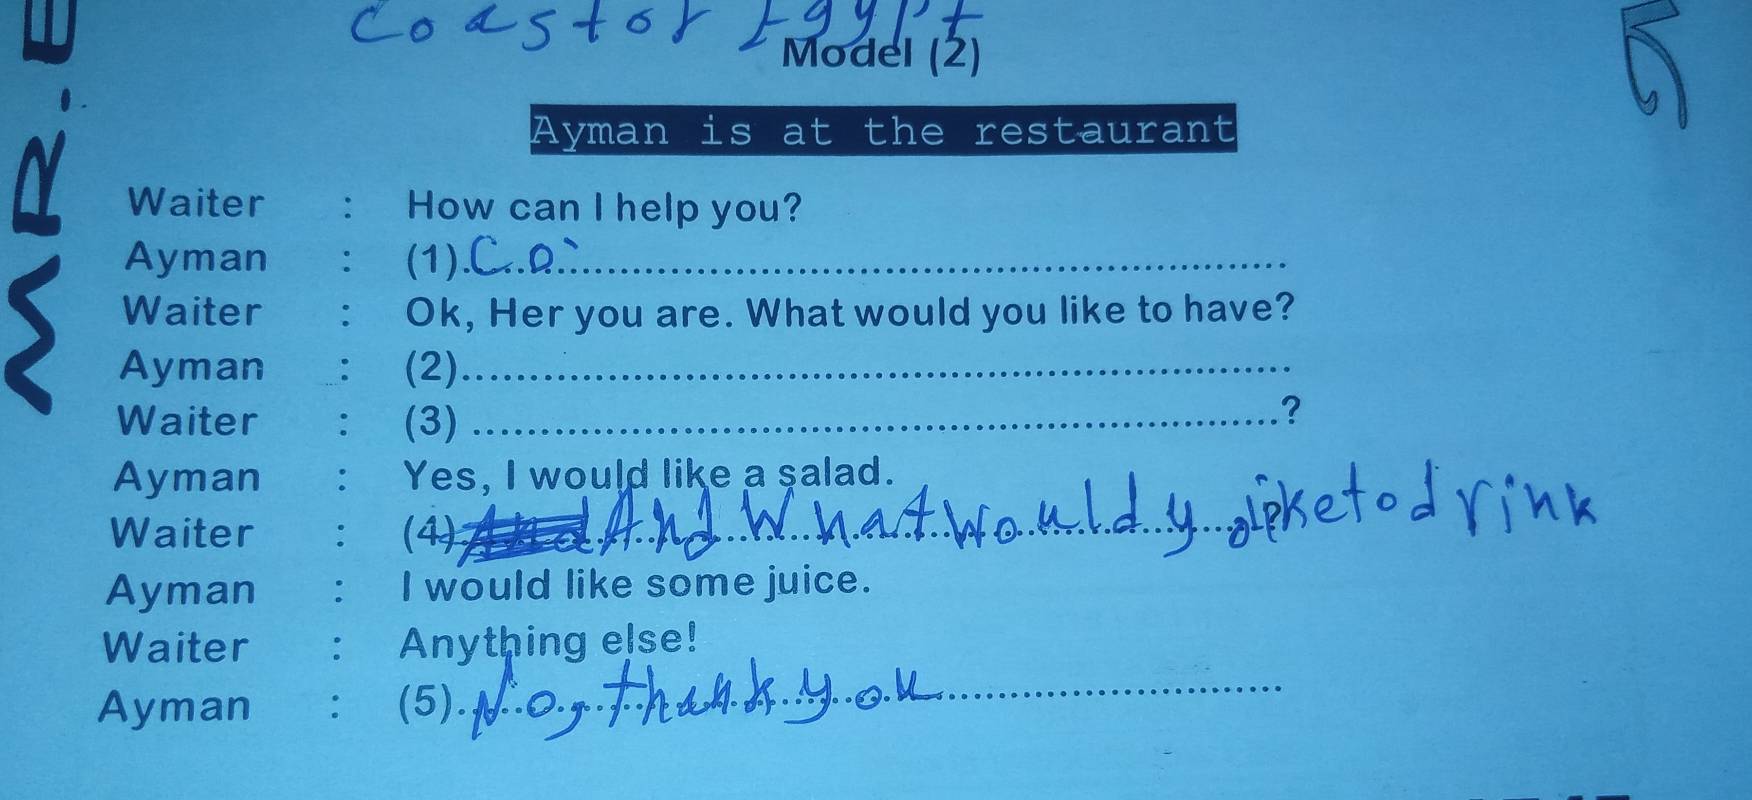 Coastor Egypt
Model (2)
MR.E
5
Ayman is at the restaurant
Waiter : How can I help you?
Ayman : (1).Co..........................................................................
Waiter : Ok, Her you are. What would you like to have?
Ayman : (2)..........................................................................
Waiter : (3) ..........................................................................?
Ayman : Yes, I would like a salad.
Waiter : (4) And What would y like to drink
Ayman : I would like some juice.
Waiter : Anything else!
Ayman : (5). No, thank you..............................